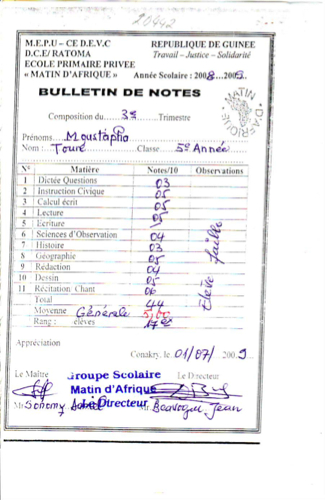 20442
M.E.P.U – CE D.E.V.C REPUBLIQUE DE GUINEE
D.C.E/ RATOMA Travail – Justice – Solidarité
ECOLE PRIMAIRE PRIVEE
« MATIN D'AFRIQUE » Année Scolaire : 2008-2009
MATIN D'AFRIQUE
BULLETIN DE NOTES
Composition du 3e Trimestre
Prénoms Moustapha
Nom : Touré Classe 5e Année
N° Matière Notes/10 Observations
1 Dictée Questions 03
2 Instruction Civique 05
3 Calcul écrit 05
4 Lecture 05
5 Ecriture 05
6 Sciences d'Observation 04
7 Histoire 03
8 Géographie 05
9 Rédaction 04
10 Dessin 05
11 Récitation Chant
Total 44
Moyenne Générale
Rang : élèves
Elève faible
Appréciation
Conakry, le 01/07/2009
Le Maître Groupe Scolaire Le Directeur
Matin d'Afrique
Le Directeur
Mr Mr. Jean